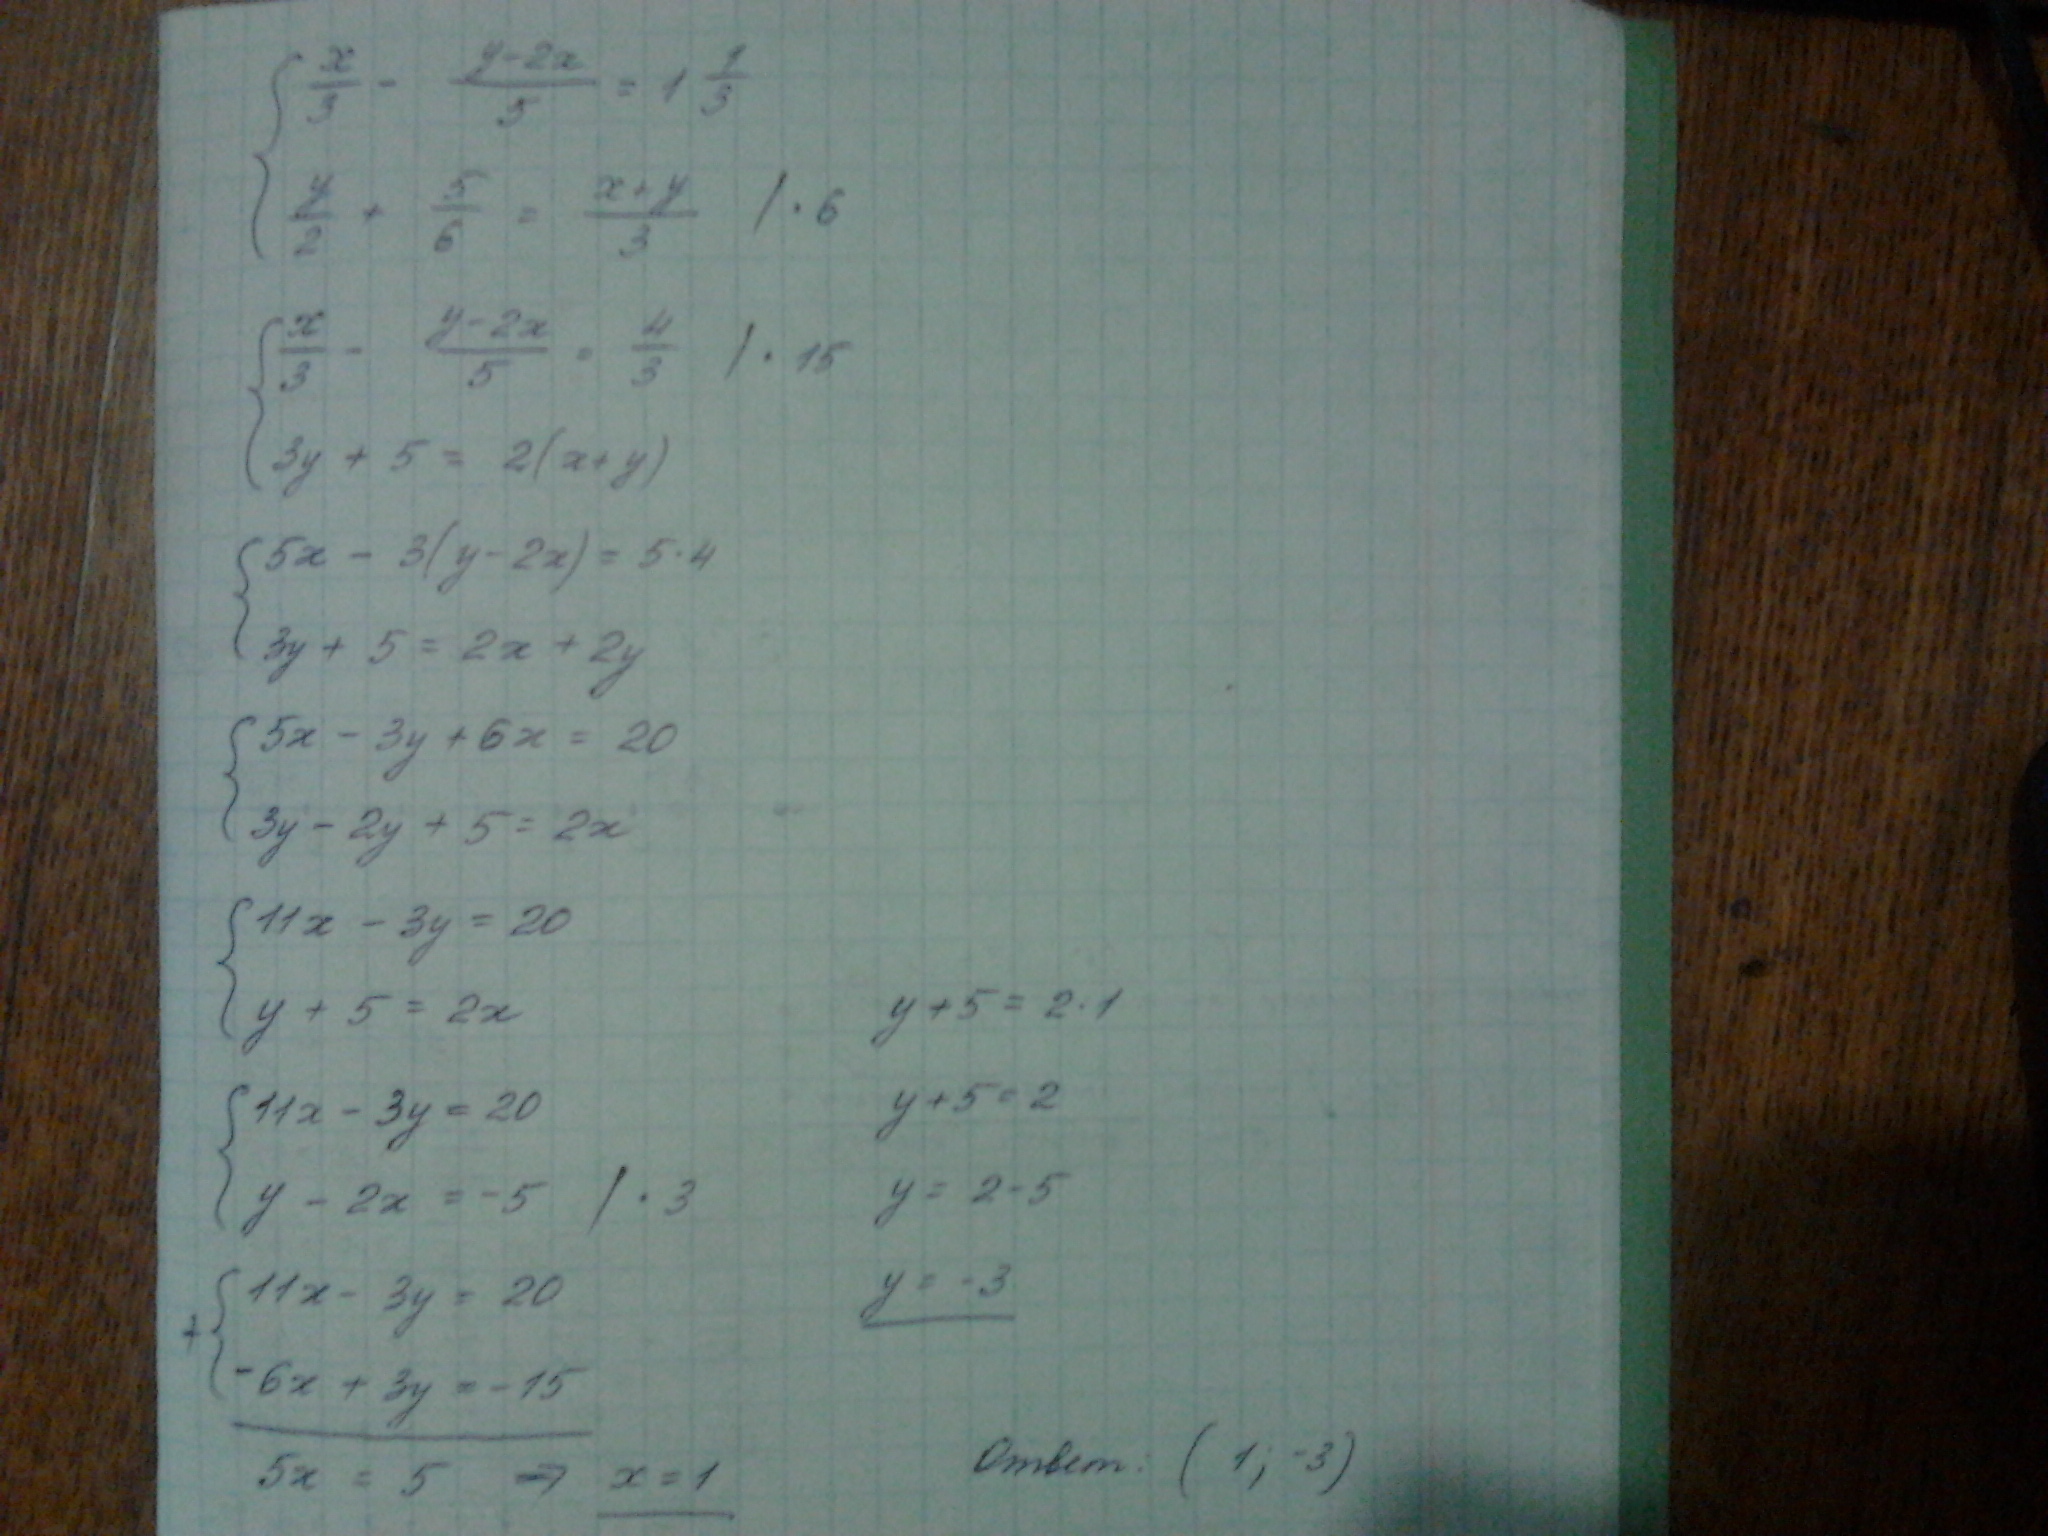 x/3 - (y-2x)/5 = 1 1/3
y/2 + 5/6 = (x+y)/3 / · 6
x/3 - (y-2x)/5 = 4/3 / · 15
3y + 5 = 2(x+y)
5x - 3(y-2x) = 5·4
3y + 5 = 2x + 2y
5x - 3y + 6x = 20
3y - 2y + 5 = 2x
11x - 3y = 20
y + 5 = 2x
11x - 3y = 20
y - 2x = -5 / · 3
+ 11x - 3y = 20
-6x + 3y = -15
5x = 5 ⇒ x = 1
y + 5 = 2·1
y + 5 = 2
y = 2-5
y = -3
Ответ: (1; -3)